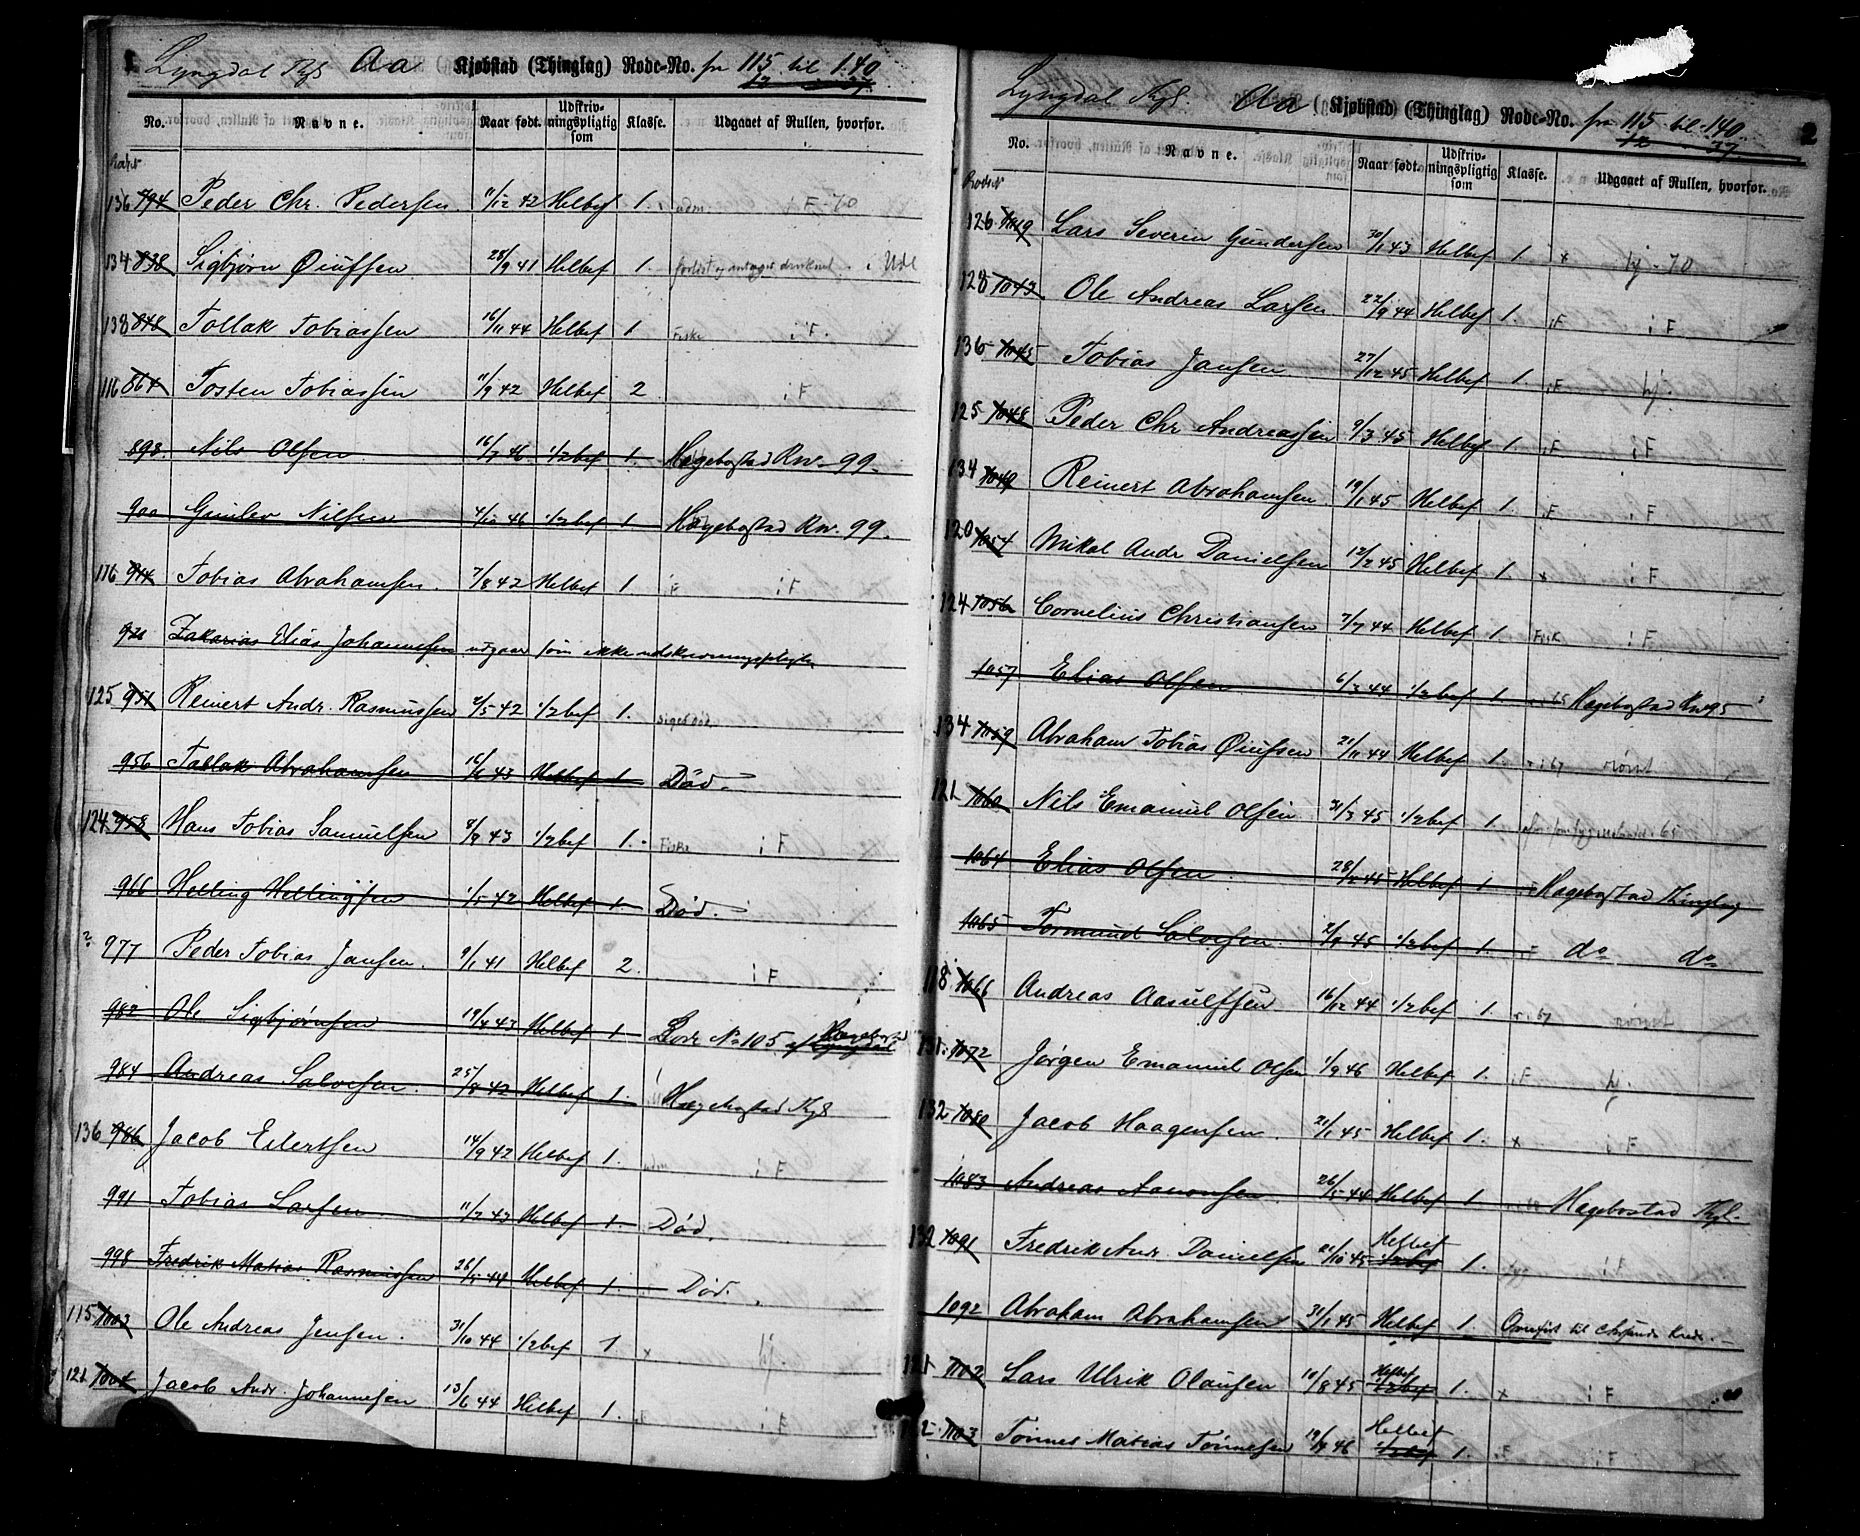 1 Lyngdal Tgl Aa Kjøbstad (Thinglag) Rode-No. fra 115 til 140
No. Navne. Naar født. Udskriv-ningspligtig som Klasse. Udgaaet af Rullen, hvorfor.
136 794 Peder Chr. Pedersen 11/12 42 Helbef 1. i F - 70
134 838 Sigbjørn Øiufsen 28/9 41 Helbef 1. i Udl
138 848 Tollak Tobiassen 16/11 44 Helbef 1 Fiske i F.
116 864 Tosten Tobiassen 11/9 42 Helbef 2 i F
898. Nils Olsen 16/7 46 1/2bef 1. Hægebostad Rnr. 99.
900 Gunlev Nilsen 4/10 46 1/2bef 1 Hægebostad Rnr. 99.
116 914 Tobias Abrahamsen. 7/8 42 Helbef 1. F i F
921 Zakarias Elias Johannessen udgaar som ikke udskrivningspligtig
125 951 Reinert Andr. Rasmussen 2/5 42 1/2bef 1. siges død
956 Tallak Abrahamsen 43 Helbef 1 Død.
124 958 Hans Tobias Samuelsen 8/9 43 1/2bef 1. Fiske i F
966 Helling Hellingsen 1/5 42 Helbef 1. Død.
? 977 Peder Tobias Jansen. 9/1 41 Helbef 2. i F
982 Ole Sigbjørnsen 19/4 43 Helbef 1 Rode No 105 af Hægebostad
984 Andreas Salvesen. 25/8 42 Helbef 1. Hægebostad Tgl
136 986 Jacob Eilertsen 14/9 42 Helbef 1. udm i F
991 Tobias Larsen 11/7 43 Helbef 1. Død.
998 Fredrik Matias Rasmussen 26/5 44 Helbef 1. Død.
115 1002 Ole Andreas Jensen. 31/10 44 1/2bef 1. x hj.
121 1004 Jacob Andr. Johannesen 13/6 44 Helbef 1. i F
Lyngdal Tgl. Aa Kjøbstad (Thinglag) Rode-No. fra 115 til 140 2
No. Navne. Naar født. Udskriv-ningspligtig som Klasse. Udgaaet af Rullen, hvorfor.
126 1019 Lars Severin Gundersen 30/1 43 Helbef 1 x hj - 70
128 1043 Ole Andreas Larsen 22/9 44 Helbef 1. F i F
136 1045 Tobias Jansen 27/12 45 Helbef 1. F hj.
125 1048 Peder Chr Andreassen 9/3 45 Helbef 1. F i F
134 1049 Reinert Abrahamsen 19/1 45 Helbef 1. F i F
120 1054 Mikal Andr Danielsen 12/2 45 Helbef 1. x i F
124 1056 Cornelius Christiansen 7/7 44 Helbef 1. Fisk i F
1057 Elias Olsen 6/2 44 1/2bef 1. Hægebostad Rnr 95
134 1059 Abraham Tobias Øiufsen 21/11 44 Helbef 1. rømt
121 1060 Nils Emanuel Olsen 31/3 45 1/2bef 1.
1064 Elias Olsen. 28/2 45 Helbef 1 Hægebostad Thinglag
1065 Tormund Salvesen. 2/9 45 1/2bef 1. do do
118 1066 Andreas Aasulfsen 16/12 44 1/2bef 1. rømt
131 1072 Jørgen Emanuel Olsen 1/9 46 Helbef 1. F hj.
132 1080 Jacob Haagensen. 21/1 45 Helbef 1. x i F
1083 Andreas Aanonsen. 26/5 44 Helbef 1 Hægebostad Tgl.
132 1091 Fredrik Andr. Danielsen 21/10 45 Helbef 1/2bef 1. i F
1092 Abraham Abrahamsen 31/1 45 Helbef 1. Overført til Chrsands Kreds.
121 1102 Lars Ulrik Olausen 10/8 45 Helbef 1/2bef 1. x i F
1103 Tønnes Matias Tønnesen 19/9 46 Helbef 1/2bef 1. F i F